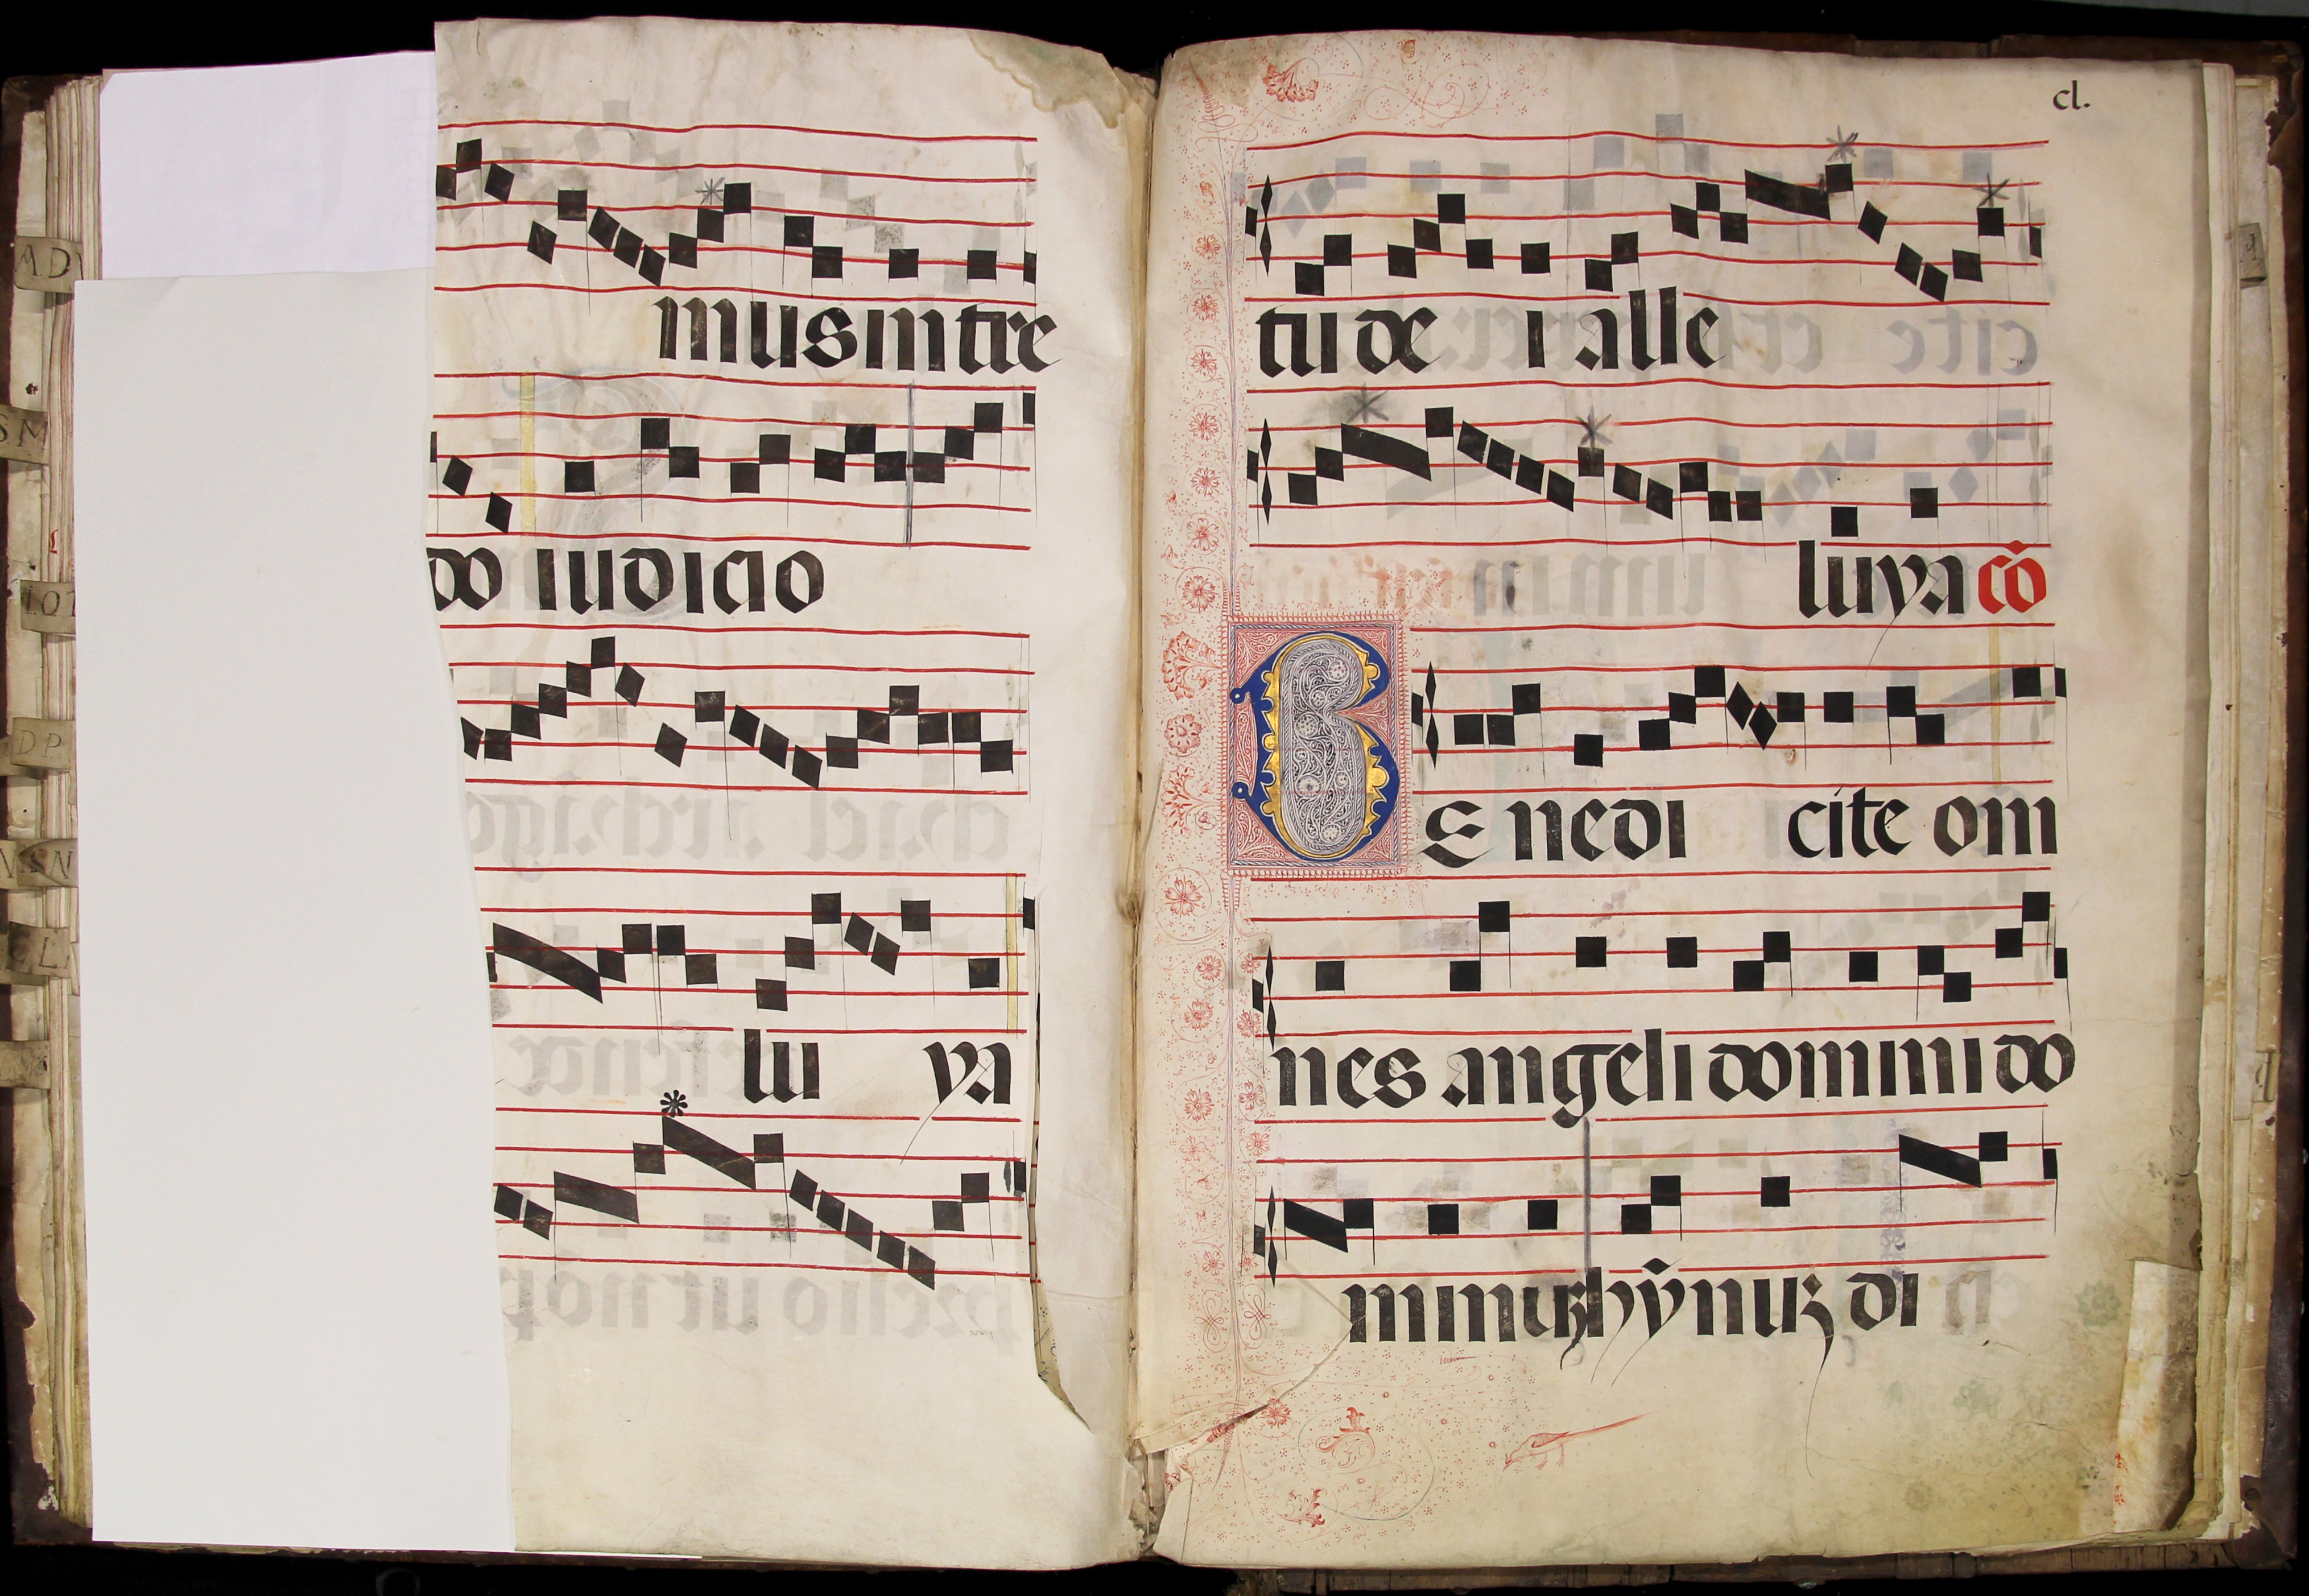 musintre
do iudicio
lu ya
cl.
tu de i alle
luya cō
BE nedi cite om
nes angeli domini do
minuꝫ hȳnuꝫ di
AD
SM